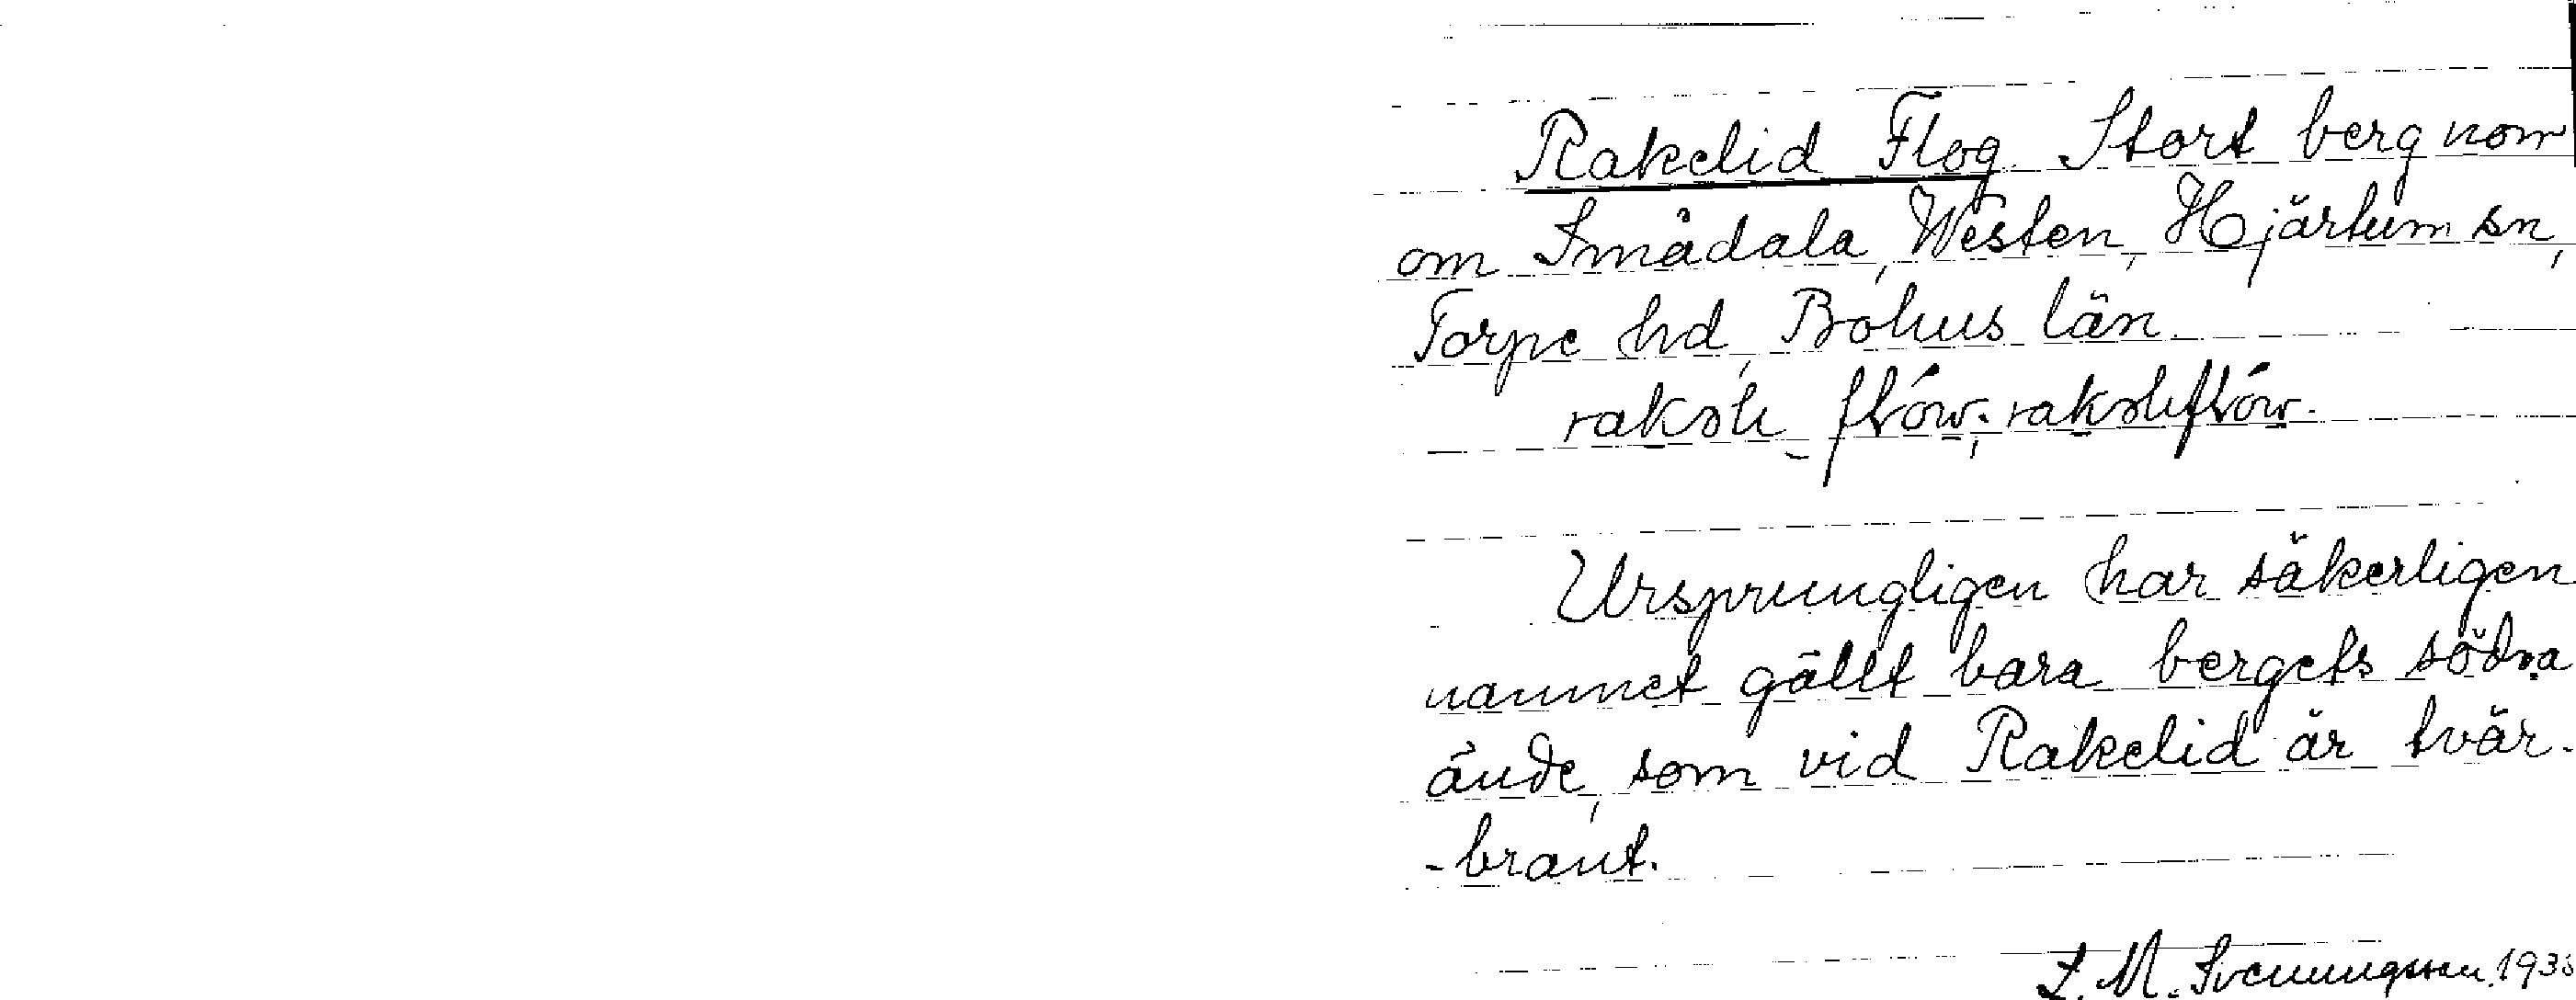 Rakelid Flog Stort berg norr
om Smådala, Westen, Hjärtum sn,
Torpe hd, Bohus län
Ursprungligen har säkerligen
namnet gällt bara bergets södra
ände, som vid Rakelid är tvär-
-brant.
S. M. Svenungsson